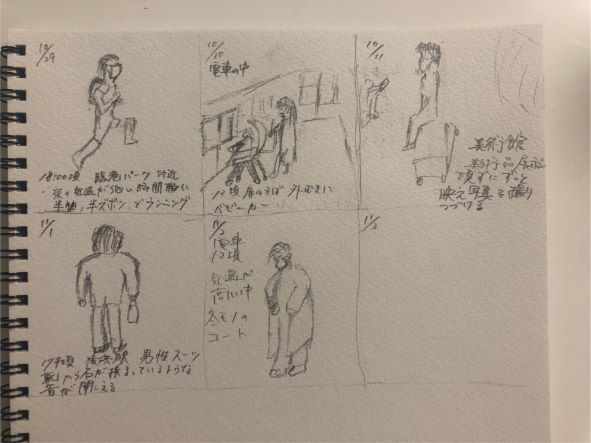 10/29
18:00頃 臨港パーク 付近
・夜の気温が低い時間帯に
半袖、半ズボンでランニング
10/30
電車の中
12頃 扉のそば 外むきに
ベビーカー
10/31
美術館
美術品
見ずにずっと
映え写真を撮り
つづける
11/1
17時頃 駅 男性スーツ
靴から石が挟まっているような
音が聞こえる
11/2
電車
12頃
気温が
高い中
冬モノの
コート
11/3